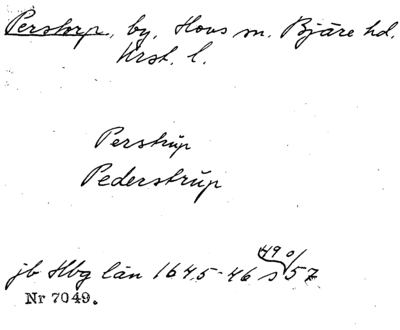 Perstorp, by, Hovs sn. Bjäre hd.
Krist. l.
Perstrup
Pederstrup
jb Hbg län 1645-46 s 57
Nr 7049.